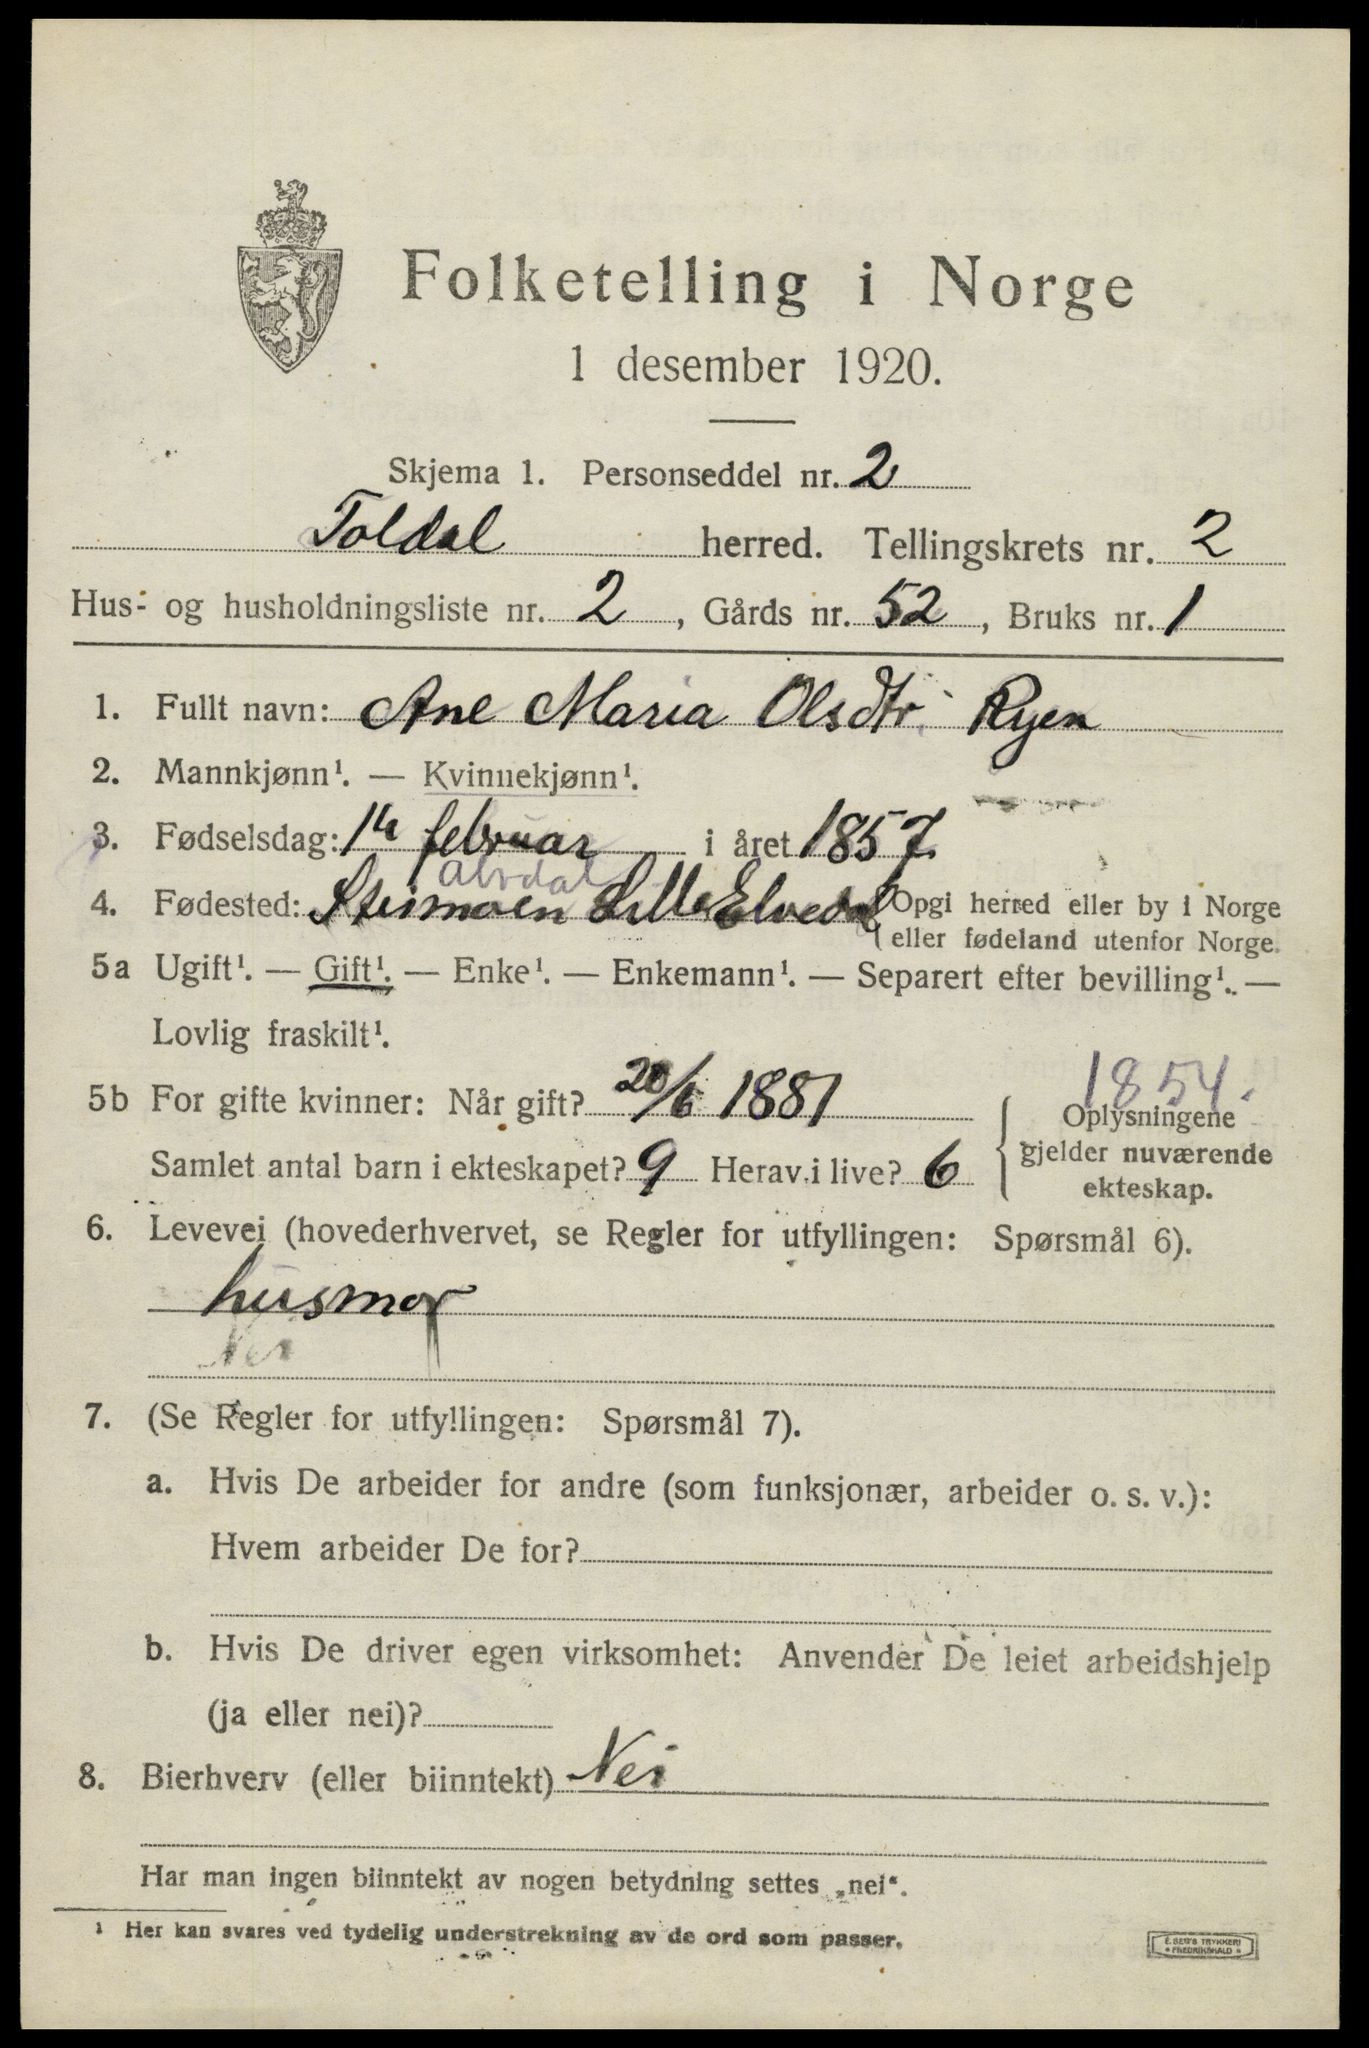 Folketelling i Norge
1 desember 1920.
Skjema 1. Personseddel nr. 2
Toldal herred. Tellingskrets nr. 2
Hus- og husholdningsliste nr. 2, Gårds nr. 52, Bruks nr. 1
1. Fullt navn: Ane Maria Olsdtr. Ryen
2. Mannkjønn¹. — Kvinnekjønn¹.
3. Fødselsdag: 14 februar i året 1857.
Alvdal
4. Fødested: Steimoen LilleElvedal { Opgi herred eller by i Norge
eller fødeland utenfor Norge.
5a Ugift¹. — Gift¹. — Enke¹. — Enkemann¹. — Separert efter bevilling¹. —
Lovlig fraskilt¹.
1854.
5b For gifte kvinner: Når gift? 20/6 1881
Samlet antal barn i ekteskapet? 9 Herav i live? 6
{ Oplysningene
gjelder nuværende
ekteskap.
6. Levevei (hovederhvervet, se Regler for utfyllingen: Spørsmål 6).
husmor
Nei
7. (Se Regler for utfyllingen: Spørsmål 7).
a. Hvis De arbeider for andre (som funksjonær, arbeider o. s. v.):
Hvem arbeider De for?
b. Hvis De driver egen virksomhet: Anvender De leiet arbeidshjelp
(ja eller nei)?
8. Bierhverv (eller biinntekt) Nei
Har man ingen biinntekt av nogen betydning settes „nei“.
¹ Her kan svares ved tydelig understrekning av de ord som passer.
E. SEM'S TRYKKERI
* FREDRIKSHALD *